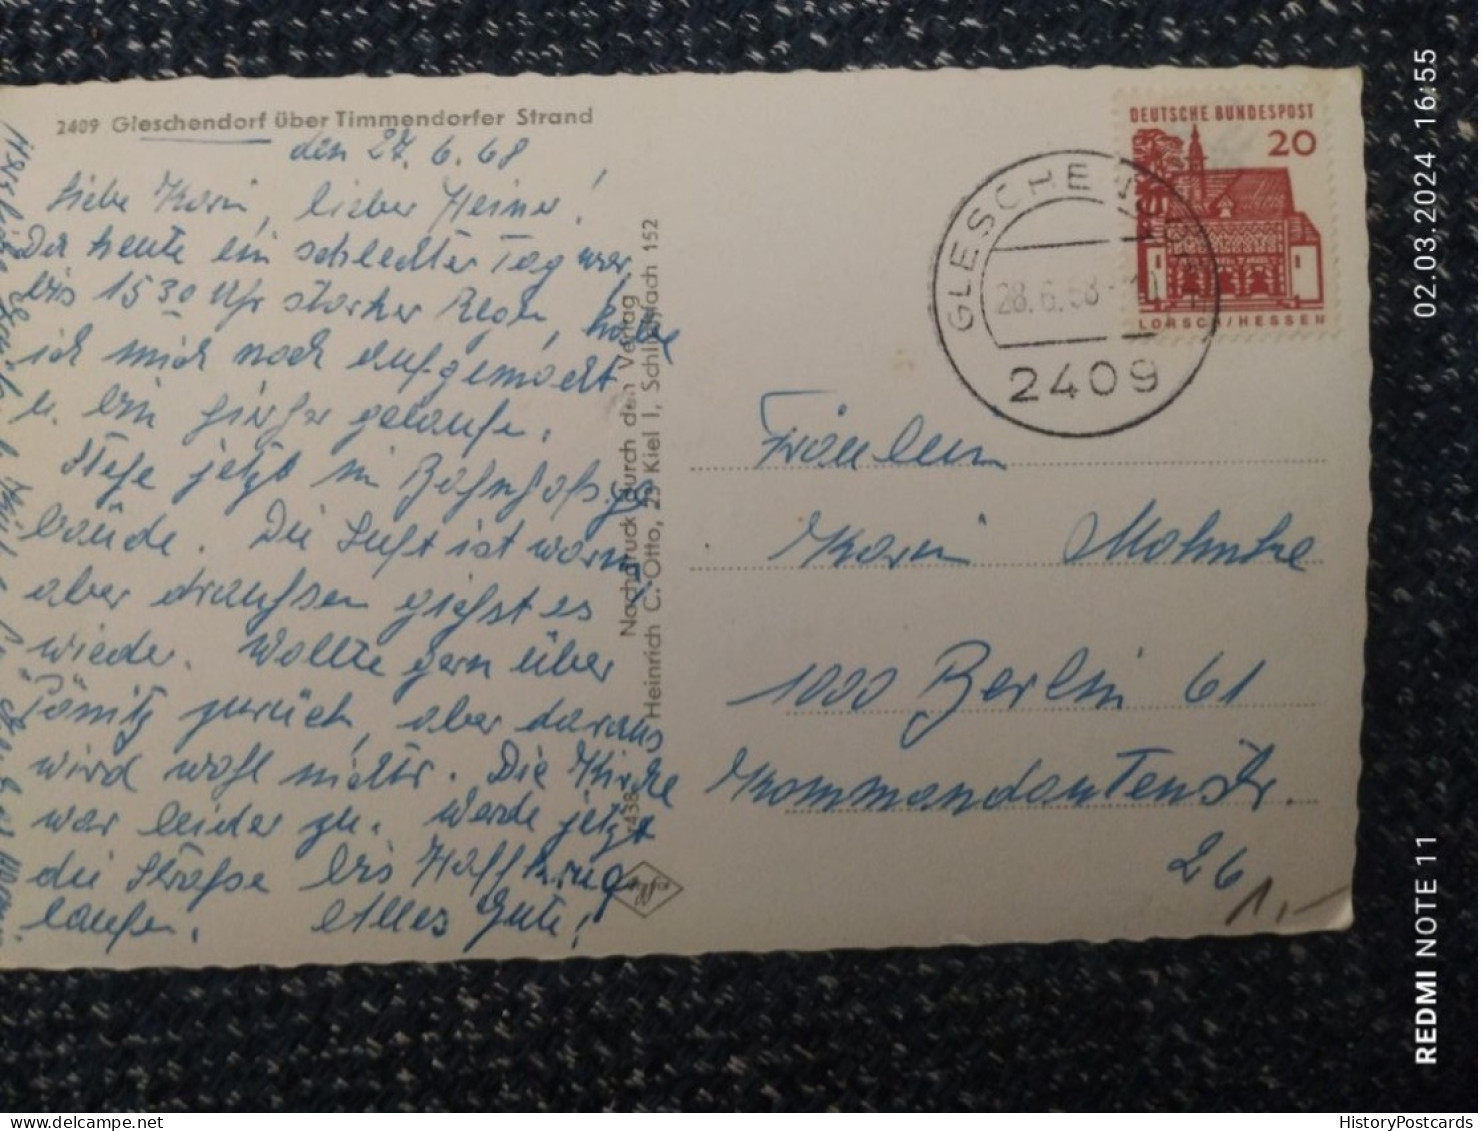 2409 Gleschendorf über Timmendorfer Strand
den 27.6.68
Liebe Karin, lieber Heiner!
Da heute ein schlechter Tag war,
bis 15 30 Uhr starker Regen, habe
ich mich noch aufgemacht
u. bin hierher gelaufen.
Stehe jetzt im Bahnhofsge
bäude. Die Luft ist warm,
aber draußsen gießst es
wieder. Wollte gern über
Pönitz zurück, aber daraus
wird wohl nichts. Die Kirche
war leider zu. Werde jetzt
die Straßse bis Haffkrug
laufen. Alles Gute!
Nachdruck durch den Verlag
Heinrich C. Otto, 23 Kiel 1, Schließfach 152
Agfa
DEUTSCHE BUNDESPOST
20
LORSCH/HESSEN
GLESCHENDORF
28.6.68
2409
Fräulein
Karin
1000 Berlin 61
Kommandantenstr.
26
1,-
02.03.2024 16:55
REDMI NOTE 11
HistoryPostcards